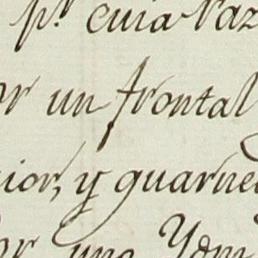 pʳ. cuia raz
or un frontal
rior, y guarne
or una Ydm